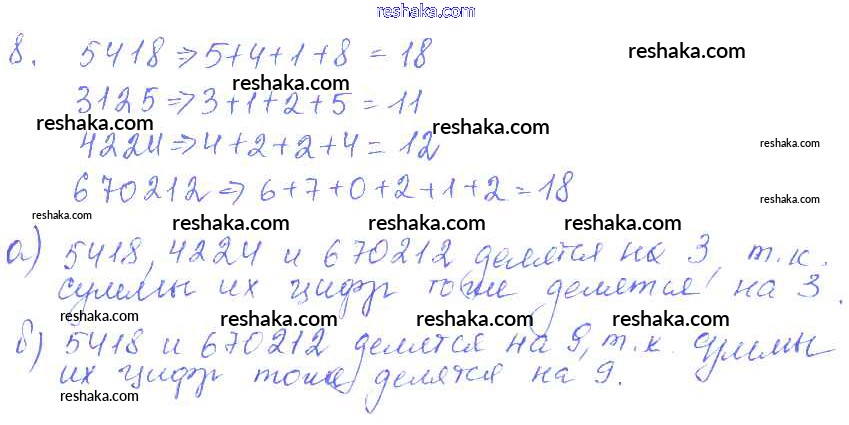 reshaka.com
8. 5418 => 5+4+1+8 = 18
reshaka.com
reshaka.com
3125 => 3+1+2+5 = 11
reshaka.com
reshaka.com
4224 => 4+2+2+4 = 12
reshaka.com
670212 => 6+7+0+2+1+2 = 18
reshaka.com
reshaka.com
reshaka.com
reshaka.com
reshaka.com
а) 5418, 4224 и 670212 делятся на 3, т.к.
суммы их цифр тоже делятся на 3.
reshaka.com
reshaka.com
reshaka.com
reshaka.com
б) 5418 и 670212 делятся на 9, т.к. суммы
их цифр тоже делятся на 9.
reshaka.com